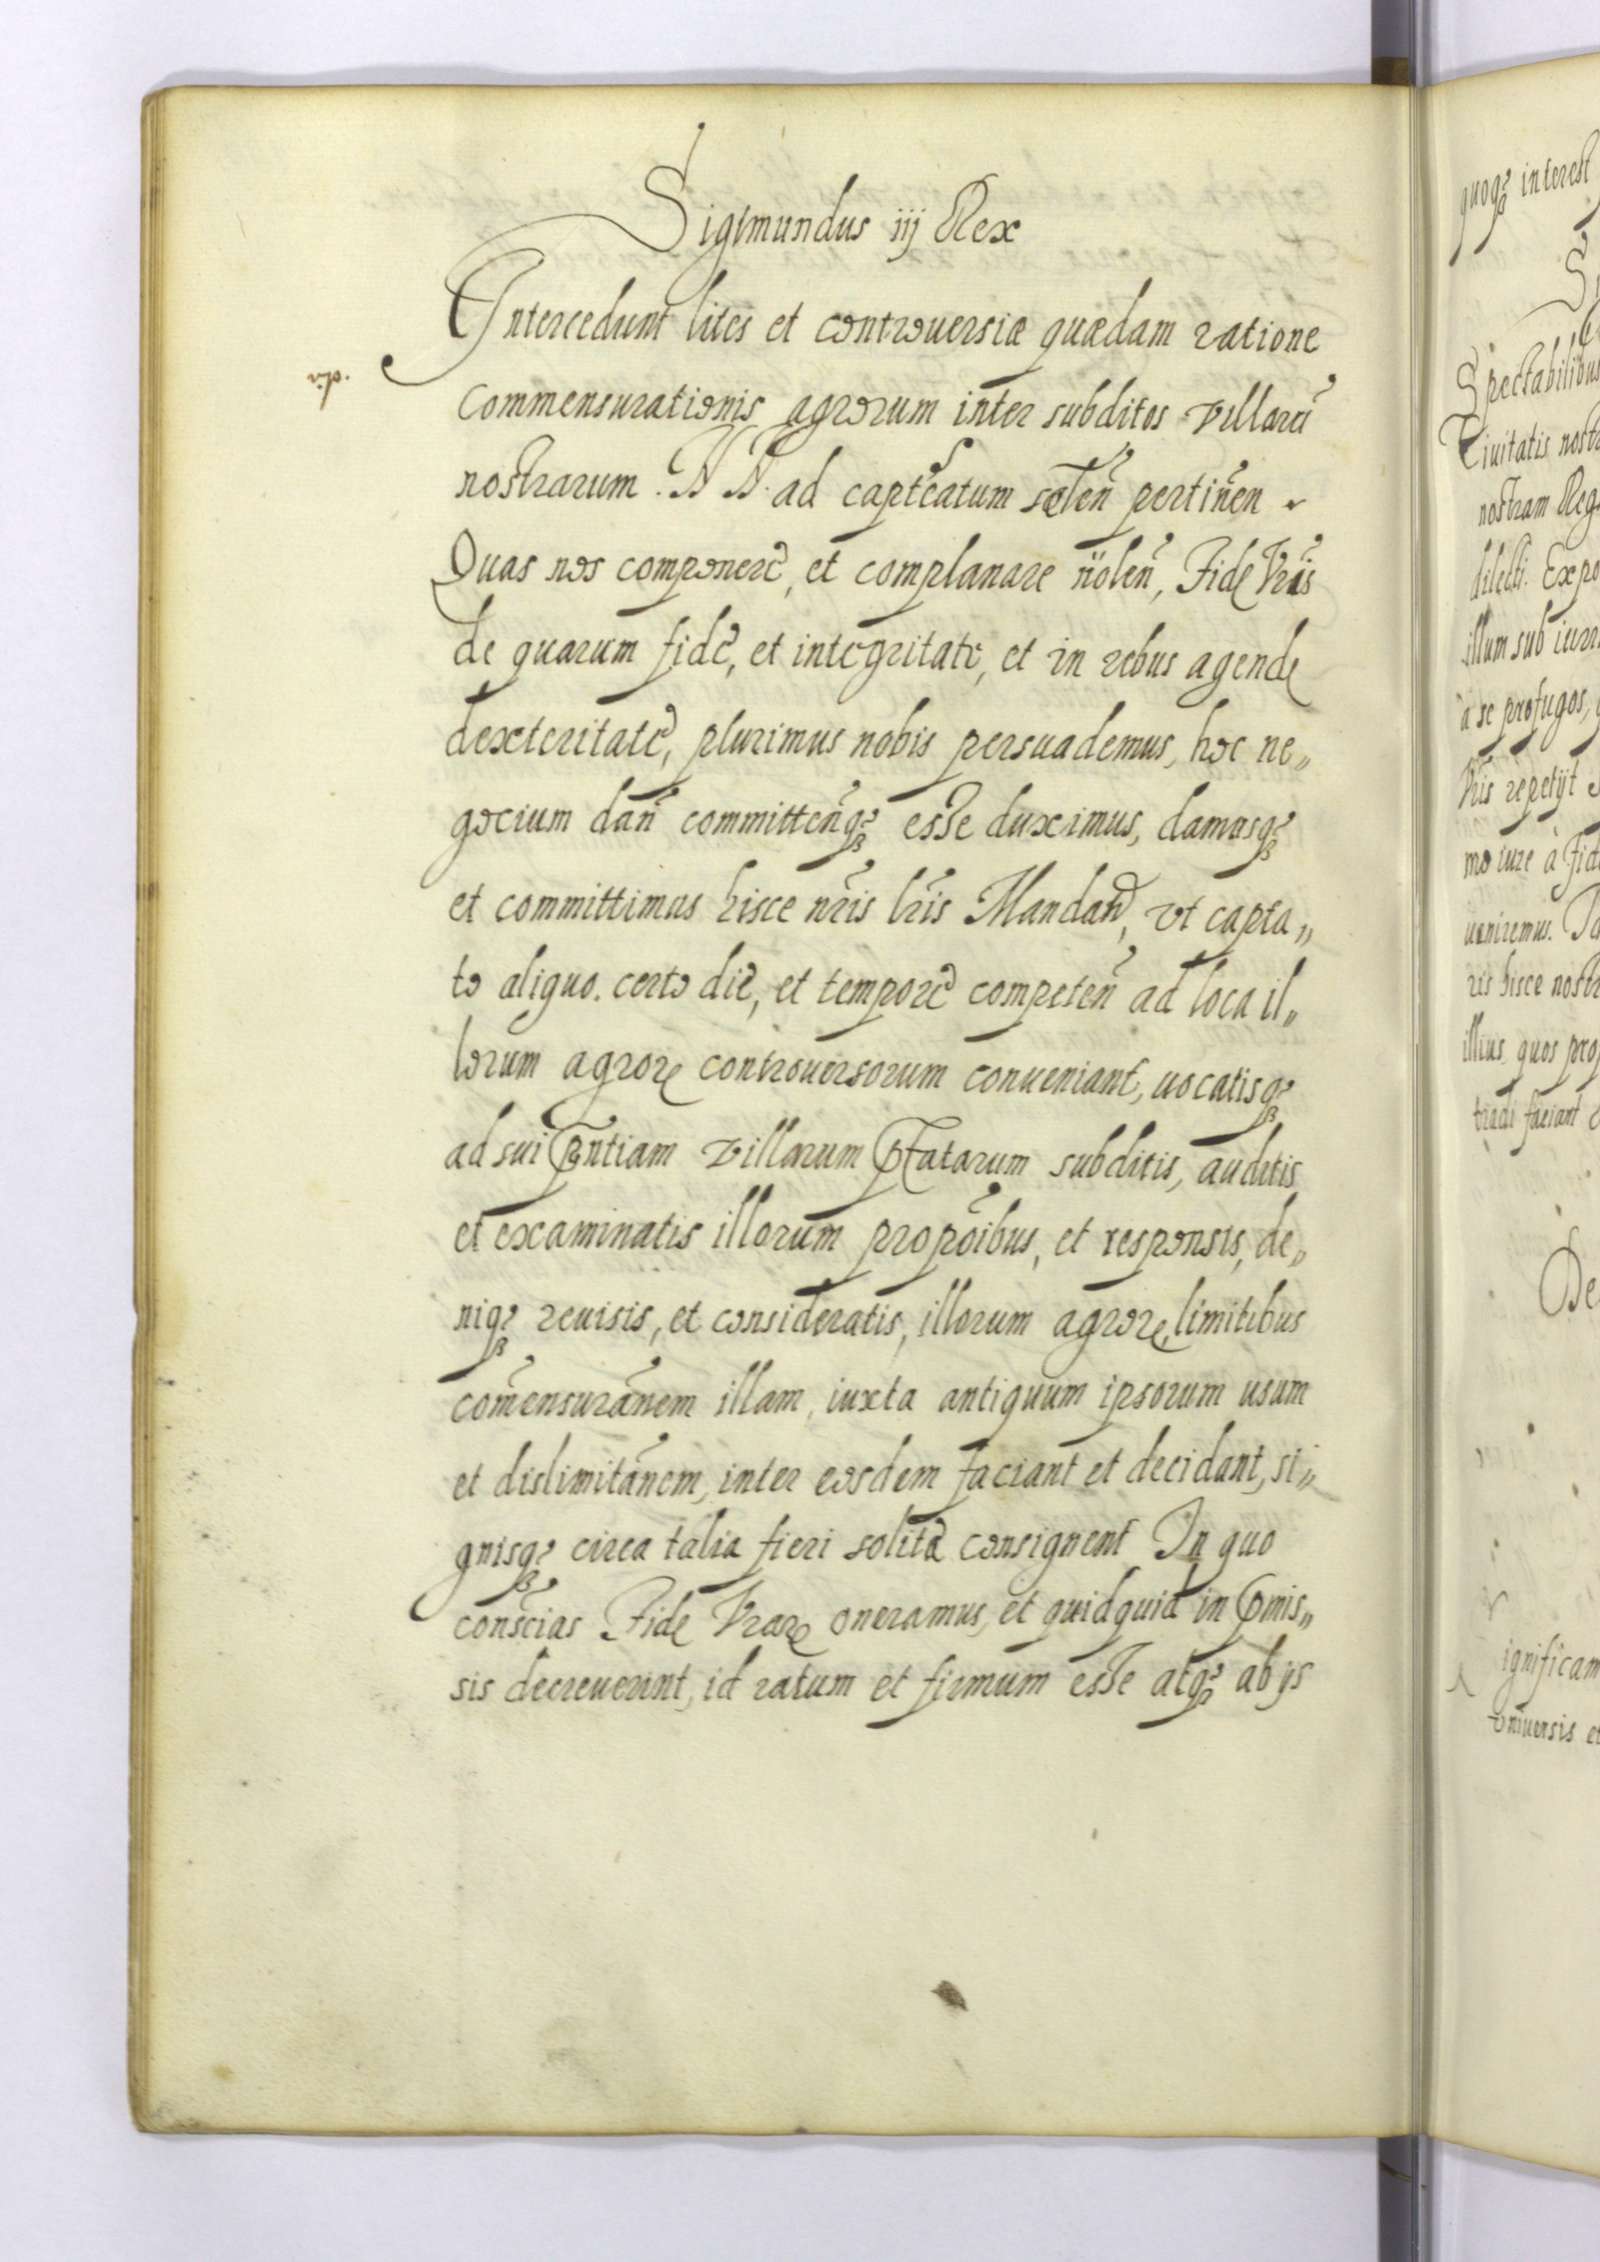 Sigimundus iij Rex
Intercedunt lites et controuersiæ quædam ratione
commensurationis agrorum inter subditos villarũ
nostrarum. N N. ad captẽatum pertinẽn
Quas nos componere, et complanare ñolen̄, Fide Vr̃is
de quarum fide, et integritate, et in rebus agende
dexteritate, plurimus nobis persuademus, hoc ne„
gocium dan̄ committen̄q₃ esse duximus, damusq₃
et committimus hisce nr̃is lr̃is Mandan̄, vt capta„
to aliquo. certo die, et tempore competen̄ ad loca il„
lorum agrorꝝ controuersorum conueniant, uocatisq₃
ad sui pñtiam villarum pf̃atarum subditis, auditis
et examinatis illorum propõibus, et responsis, de„
niq₃ reuisis, et consideratis, illorum agrorꝝ limitibus
com̃ensurãnem illam, iuxta antiquum ipsorum usum
et dislimitãnem, inter eosdem faciant et decidant, si„
gnisq₃ circa talia fieri solita consignent In quo
consc̃ias Fide Vrarꝝ oneramus, et quidquid in p̃mis„
sis decreuerint, id ratum et firmum esse atq₃ ab ijs
quoq₃ interest
Spectabilibus
Ciuitatis nostr
nostram Reg
dilecti. Expo
illum sub iurr
à se profugos,
Vr̃is repetijt
mo iure à Fid
ueniremus.
ris hisce nostr
illius, quos prop
tradi faciant
De
ignificam
vniuersis et